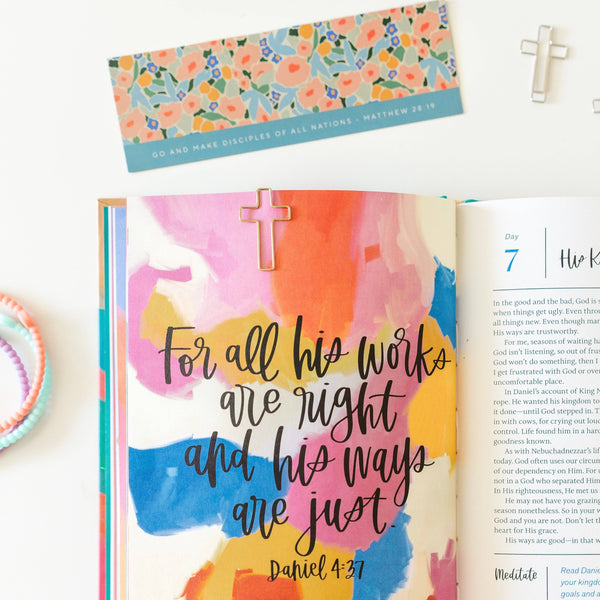 GO AND MAKE DISCIPLES OF ALL NATIONS - MATTHEW 28:19
For all his works
are right
and his ways
are just.
Daniel 4:37
Day
7
His
In the good and the bad, God is
when things get ugly. Even
all things new. Even though
His ways are trustworthy.
For me, seasons of waiting
God isn't listening, so out of
God won't do something, then I
I get frustrated with God or
uncomfortable place.
In Daniel's account of King
rope. He wanted his kingdom to
it done—until God stepped in.
in with cows, for crying out
control. Life found him in a
goodness known.
As with Nebuchadnezzar's
today. God often uses our
of our dependency on Him. For
not in a God who separated
In His righteousness, He met us
He may not have you
season nonetheless. So in your
God and you are not. Don't let
heart for His grace.
His ways are good—in that
Meditate
Read
your
goals and a